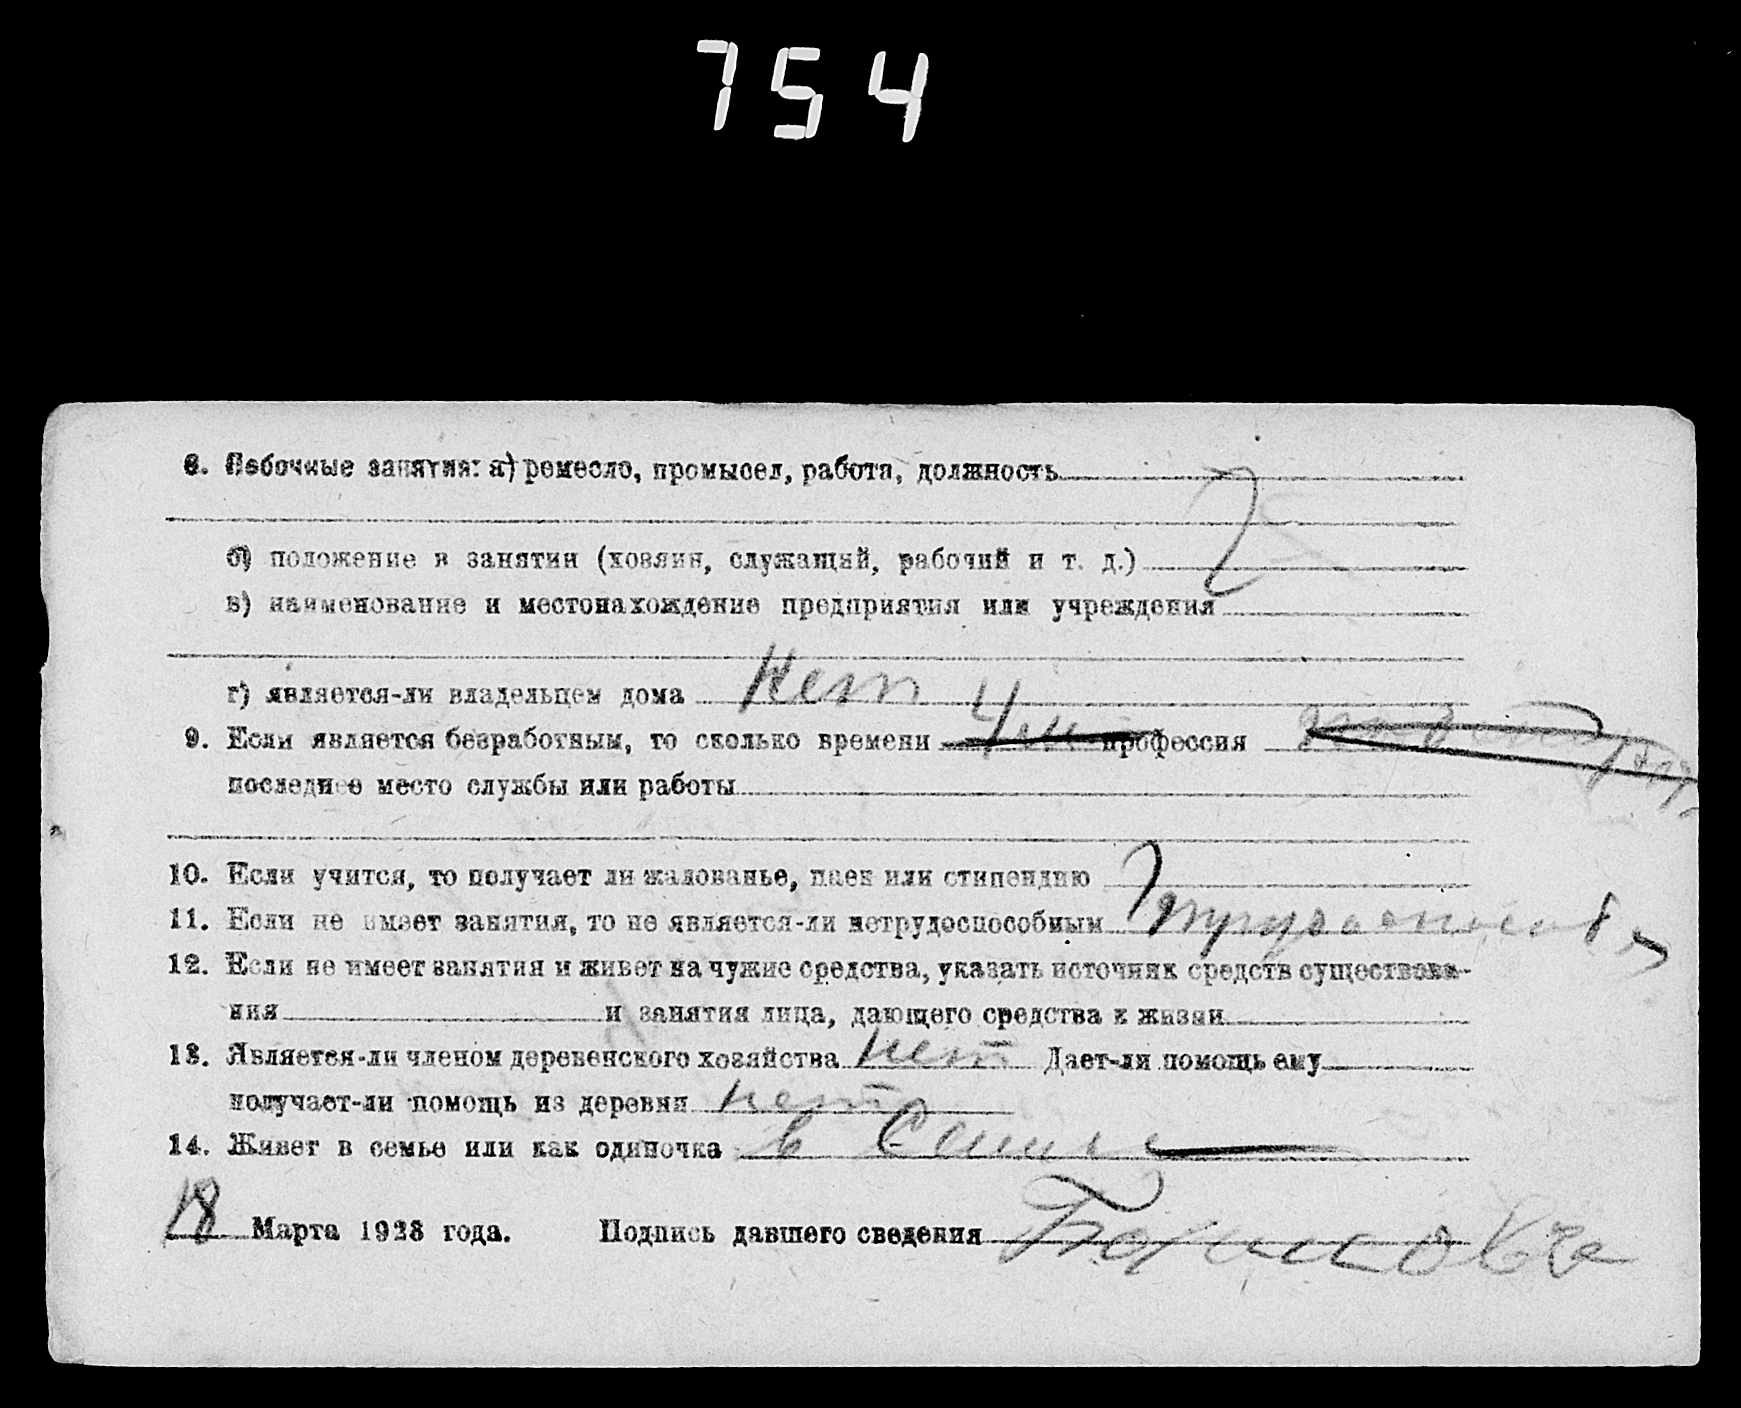 754
8. Побочные занятия: а) ремесло, промысел, работа, должность
б) положение в занятии (хозяин, служащий, рабочий и т. д.)
в) наименование и местонахождение предприятия или учреждения
г) является-ли владельцем дома Нет
9. Если является безработным, то сколько времени профессия
последнее место службы или работы
10. Если учится, то получает ли жалованье, паек или стипендию
11. Если не имеет занятия, то не является-ли нетрудоспособным
12. Если не имеет занятия и живет на чужие средства, указать источник средств существова-
ния и занятия лица, дающего средства к жизни
13. Является-ли членом деревенского хозяйства нет Дает-ли помощь ему
получает-ли помощь из деревни нет
14. Живет в семье или как одиночка в Семье
18 Марта 1923 года. Подпись давшего сведения